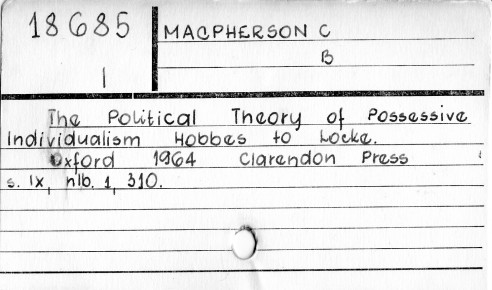 18685
MACPHERSON C
B
I
The Political Theory of Possessive
Individualism Hobbes to Locke.
Oxford 1964 Clarendon Press
s. IX, nlb. 1, 310.